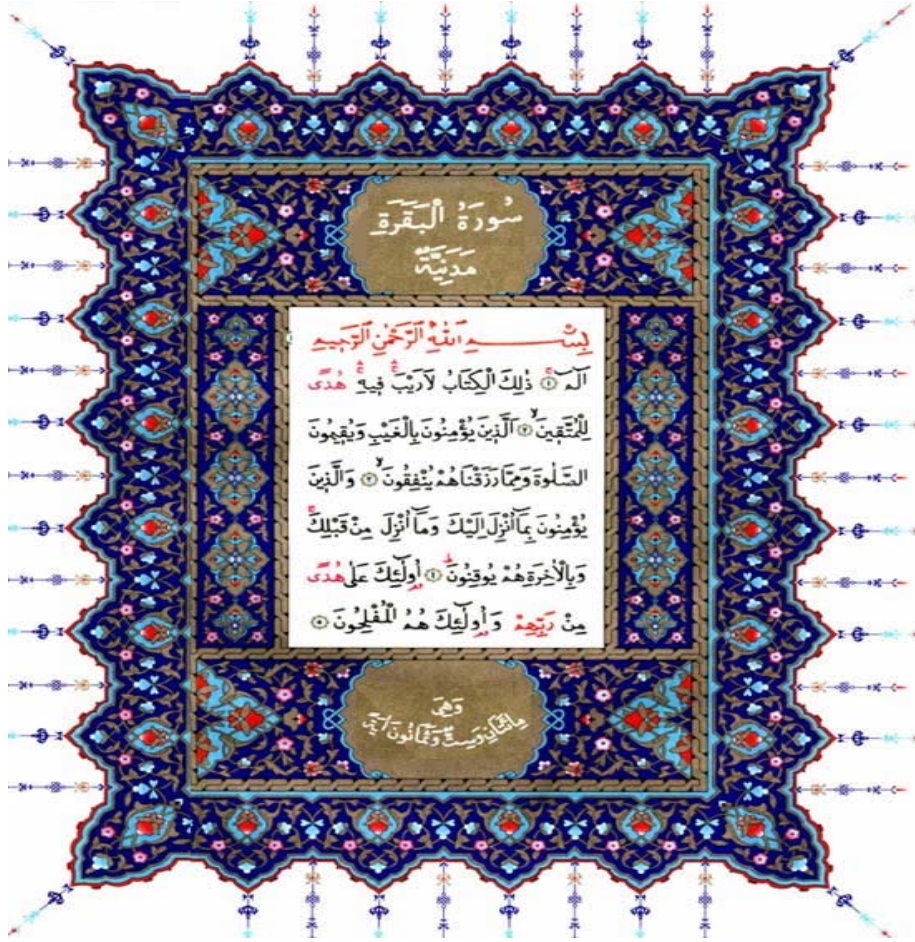 سُورَةُ الْبَقَرَةِ
مَدَنِيَّةٌ
بِسْمِ اللّٰهِ الرَّحْمٰنِ الرَّحِيمِ
الٓمٓ ۚ ﴿١﴾ ذٰلِكَ الْكِتَابُ لَا رَيْبَ ۛ ف۪يهِ ۛ هُدًى
لِلْمُتَّق۪ينَ ۙ ﴿٢﴾ اَلَّذ۪ينَ يُؤْمِنُونَ بِالْغَيْبِ وَيُق۪يمُونَ
الصَّلٰوةَ وَمِمَّا رَزَقْنَاهُمْ يُنْفِقُونَ ۙ ﴿٣﴾ وَالَّذ۪ينَ
يُؤْمِنُونَ بِمَٓا اُنْزِلَ اِلَيْكَ وَمَٓا اُنْزِلَ مِنْ قَبْلِكَ ۚ
وَبِالْاٰخِرَةِ هُمْ يُوقِنُونَ ۜ ﴿٤﴾ اُو۬لٰٓئِكَ عَلٰى هُدًى
مِنْ رَبِّهِمْ وَاُو۬لٰٓئِكَ هُمُ الْمُفْلِحُونَ ﴿٥﴾
وَهِيَ
مِائَتَانِ وَسِتٌّ وَثَمَانُونَ اٰيَةً